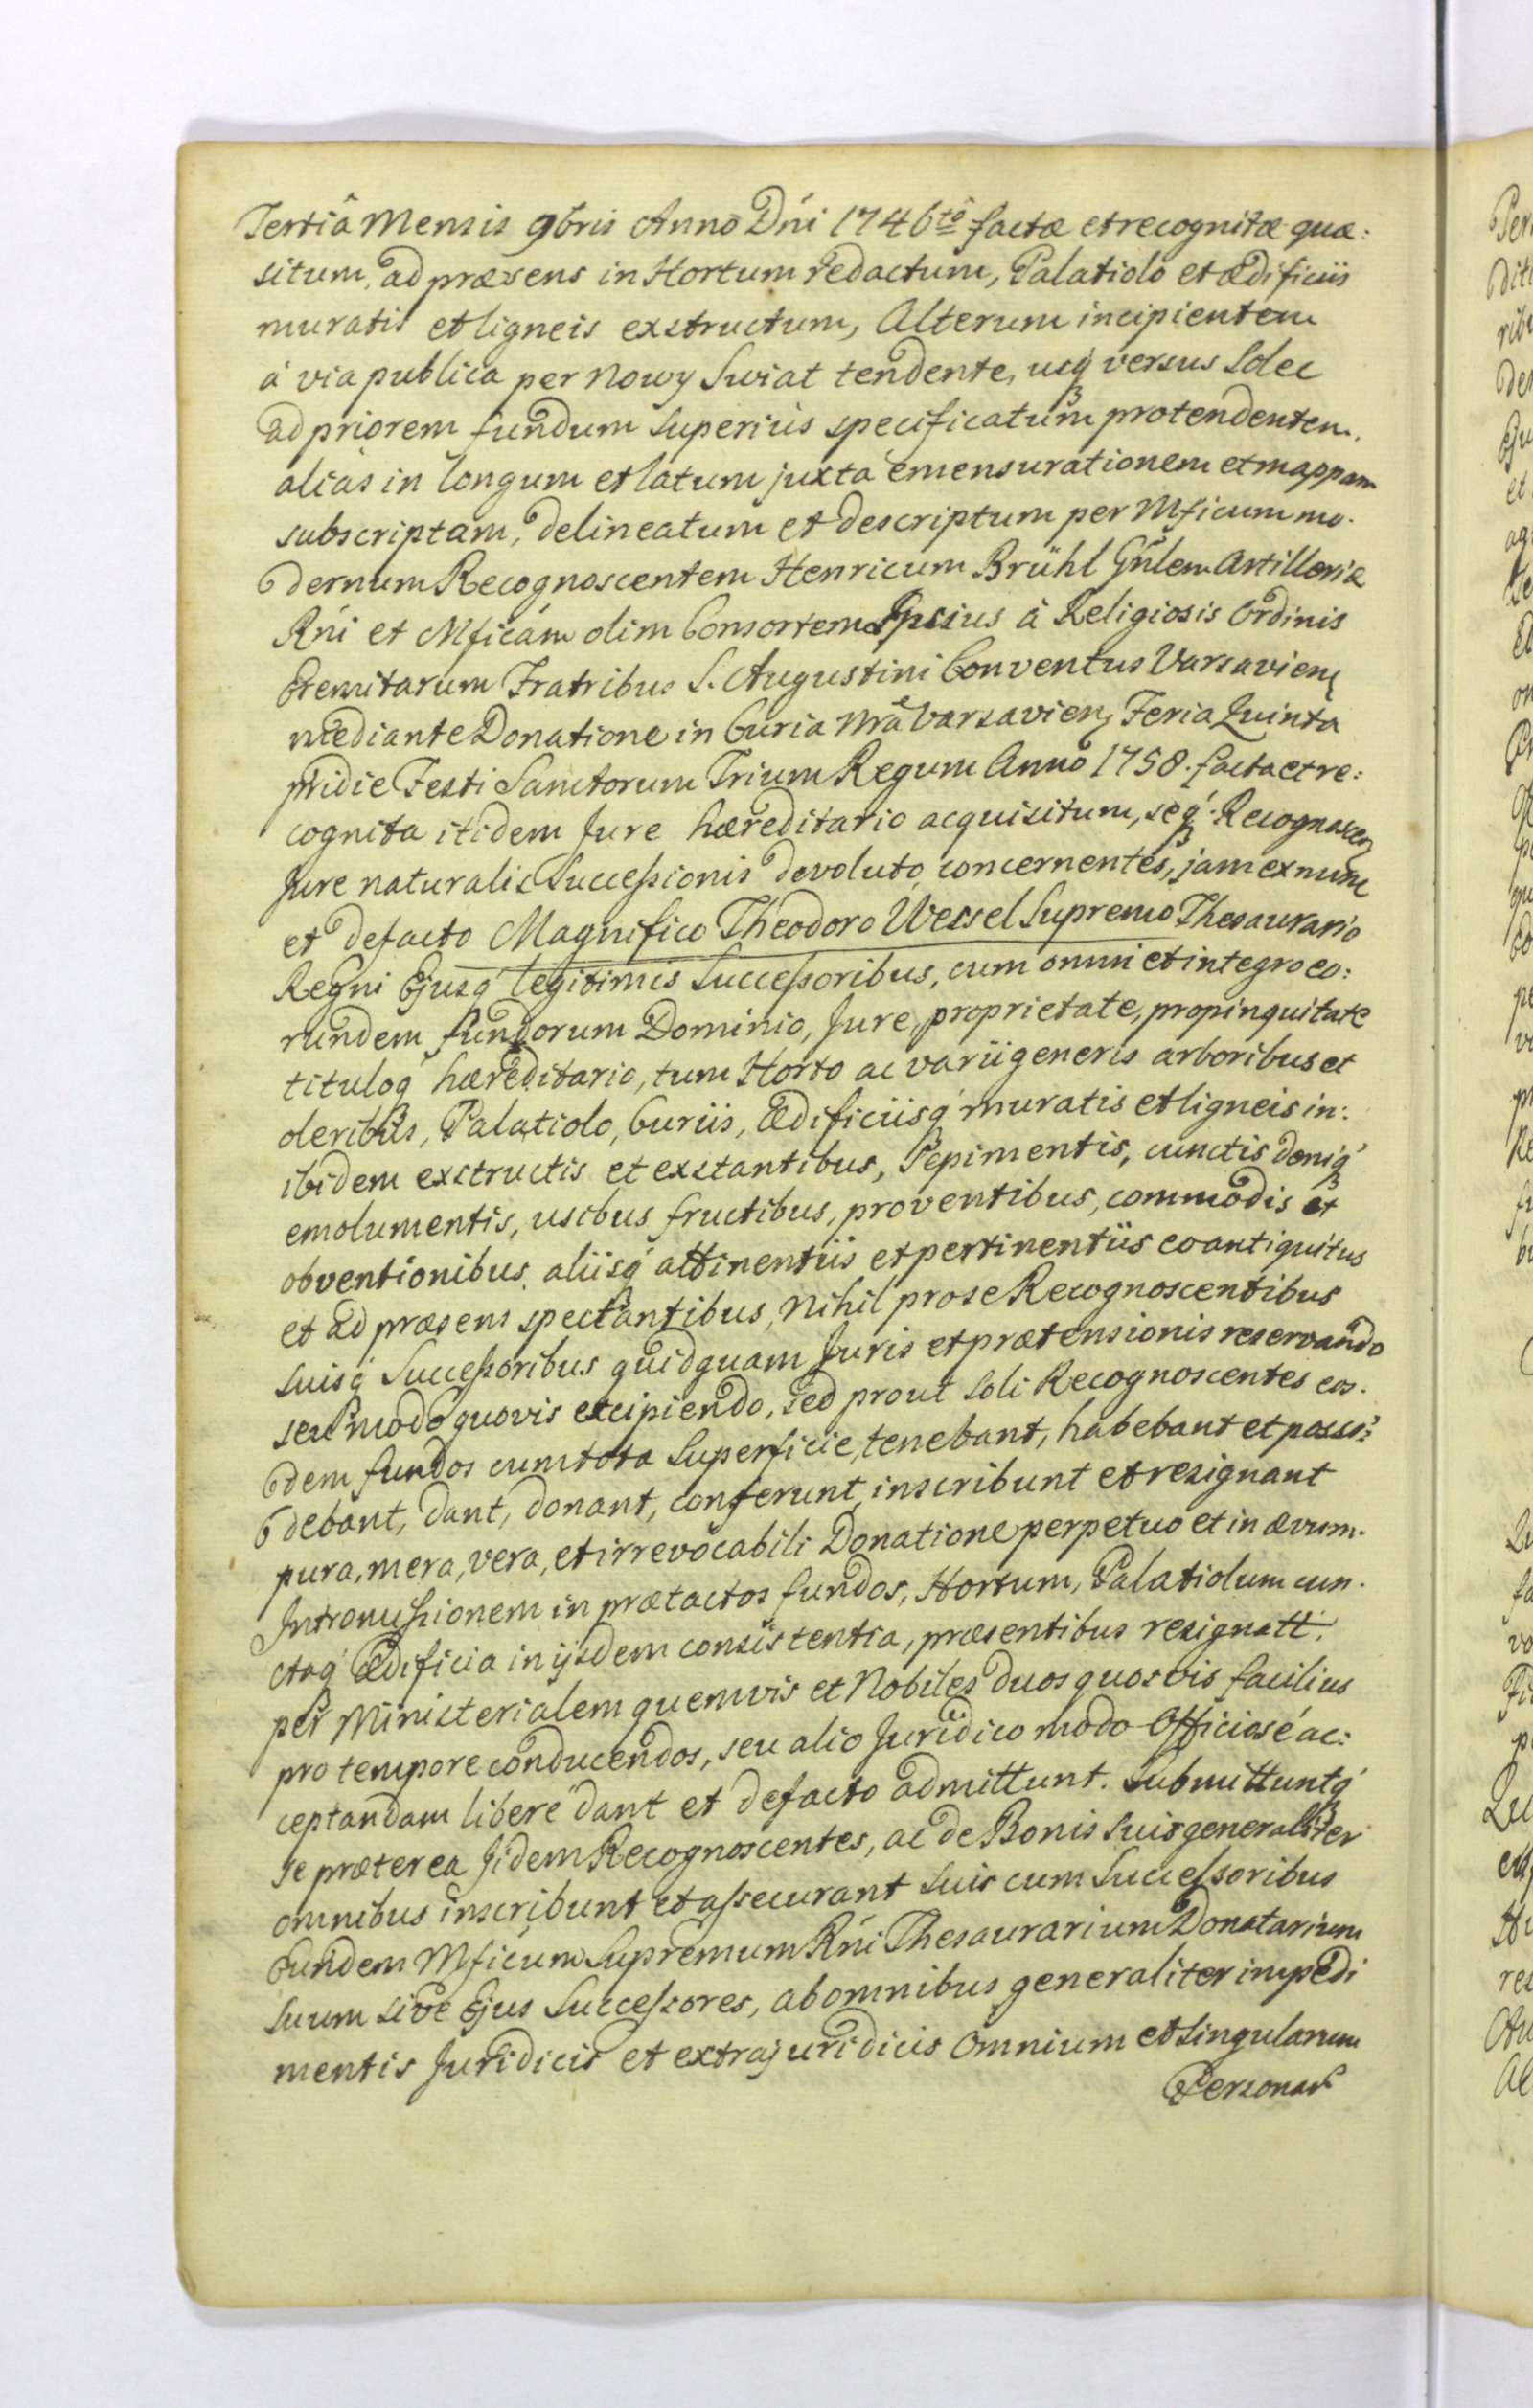 Tertiâ Mensis 9bris Anno Dńi 1746tô factæ et recognitæ quæ:
situm, ad præsens in Hortum redactum, Palatiolo et ædificiis
muratis et ligneis exstructum, Alterum incipientem
à via publica per Nowy Swiat tendente, usq́ versus Solec
ad priorem fundum superiùs specificatum protendentem.
aliàs in longum et latum juxta emensurationem et mappam
subscriptam, delineatum et descriptum per Mficum mo.
dernum Recognoscentem Henricum Brühl Gńlem Artilleriæ
Rńi et Mficám olim Consortem Ipsius à Religiosis Ordinis
Eremitarum Fratribus S. Augustini Conventus Varsavien
mediante Donatione in Curia Nrâ Varsavien Feria Quinta
pridie Festi Sanctorum Trium Regum Anno 1758. facta et re:
cognita itidem Jure hæreditario acquisitum, seq́. Recognoscen
Jure naturalis Successionis devoluto, concernentes, jam ex nunc
et defacto Magnifico Theodoro Wessel Supremo Thesaurario
Regni Ejusq́ legitimis Successoribus, cum omni et integro eo:
rundem fundorum Dominio, Jure, proprietate, propinquitate
tituloq́ hæreditario, tum Horto ac varii generis arboribus et
oleribus, Palatiolo, Curiis, Ædificiisq́ muratis et ligneis in:
ibidem exstructis et exstantibus, Sepimentis, cunctis deniq́
emolumentis, usibus, fructibus, proventibus, commodis et
obventionibus, aliisq́ attinentiis et pertinentiis eo antiquitus
et ad præsens spectantibus, Nihil pro se Recognoscentibus
suisq́ Successoribus quidquam Juris et prætensionis reservando
seu modo quovis excipiendo, sed prout soli Recognoscentes eos.
dem fundos cum tota Superficie, tenebant, habebant et possi:
debant, dant, donant, conferunt, inscribunt et resignant
pura, mera, vera, et irrevocabili Donatione perpetuo et in ævum.
Intromissionem in prætactos fundos, Hortum, Palatiolum cun.
ctaq́ Ædificia in ijsdem consistentia, præsentibus resignatt.
per Ministerialem quemvis et Nobiles duos quosvis facilius
pro tempore conducendos, seu alio Juridico modo Officiosé ac:
ceptandam liberè dant et defacto admittunt. Submittuntq́
se præterea Jidem Recognoscentes, ac de Bonis suis generaliter
omnibus inscribunt et assecurant suis cum Successoribus
Eundem Mficum Supremum Rńi Thesaurarium Donatarium
suum sive Ejus Successores, ab omnibus generaliter impedi
mentis Juridicis et extrajuridicis omnium et singularum
Personar